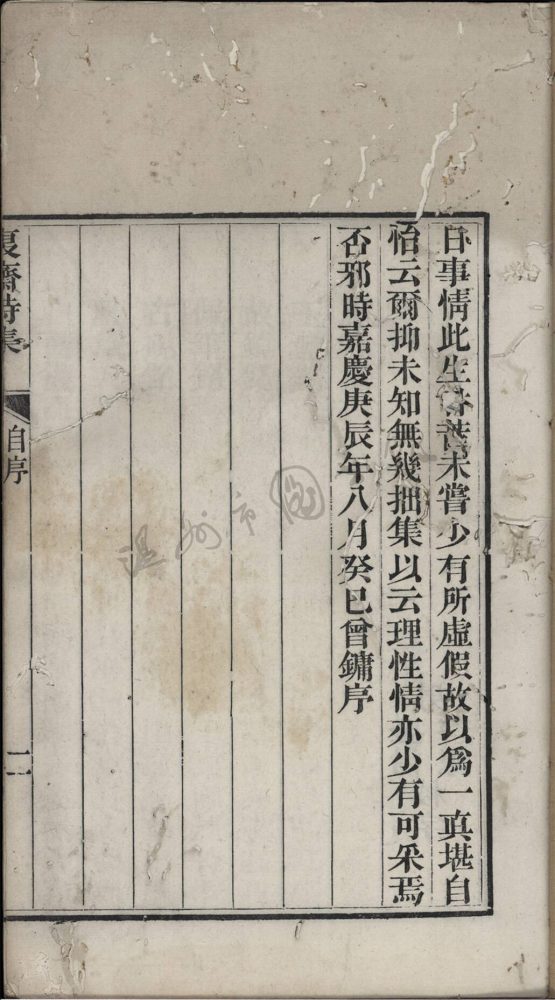 日事情此生甘苦未嘗少有所虛假故以爲一眞堪自
怡云爾抑未知無幾拙集以云理性情亦少有可采焉
否邪時嘉慶庚辰年八月癸巳曾鏞序
復齋詩集
自序
二
溫州市圖